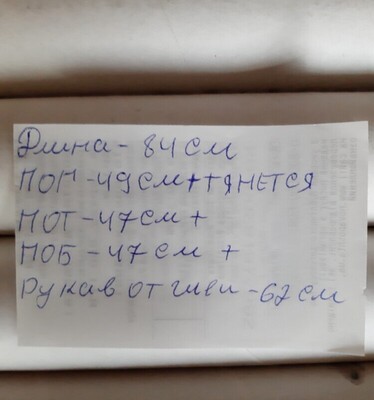 Длина - 84 см
ПОГ - 49 см + тянется
ПОТ - 47 см +
ПОБ - 47 см +
Рукав от шеи - 62 см